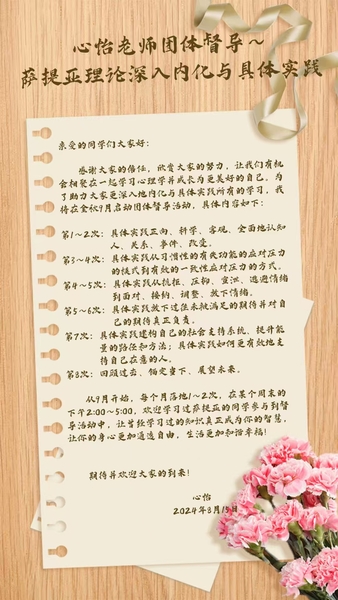 心怡老师团体督导~
萨提亚理论深入内化与具体实践
亲爱的同学们大家好:
感谢大家的信任,欣赏大家的努力,让我们有机
会相聚在一起学习心理学并成长为更美好的自己。为
了助力大家更深入地内化与具体实践所有的学习,我
将在金秋9月启动团体督导活动,具体内容如下:
第1~2次:具体实践正向、科学、客观、全面地认知
人、关系、事件、改变。
第3~4次:具体实践从习惯性的有我功能的应对压力
的模式到有效的一致性应对压力的方式。
第4~5次:具体实践从抗拒、压抑、宣泄、逃避情绪
到面对、接纳、调整、放下情绪。
第5~6次:具体实践放下过往未被满足的期待并对自
己的期待真正负责。
第7次:具体实践建构自己的社会支持系统,提升能
量的路径和方法;具体实践如何更有效地支
持自己在意的人。
第8次:回顾过去、锚定当下、展望未来。
从9月开始,每个月落地1~2次,在某个周末的
下午2:00~5:00,欢迎学习过萨提亚的同学参与到督
导活动中,让曾经学习过的知识真正成为你的智慧,
让你的身心更加通透自由,生活更加和谐幸福!
期待并欢迎大家的到来!
心怡
2024年8月15日